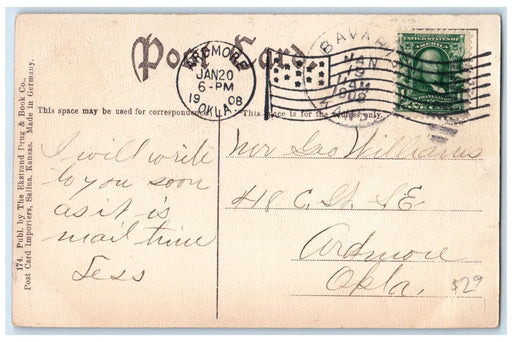 Post Card
ARDMORE
JAN 20
6-PM
1908
OKLA.
BAVARIA
JAN
19
AM
1908
KANS.
UNITED STATES
This space may be used for correspondence
This space is for the address only.
174. Publ. by The Ekstrand Drug & Book Co.,
Post Card Importers, Salina, Kansas. Made in Germany.
I will write
to you soon
as it is
mail time
Jess
Williams
418 C. St. S E
Ardmore
Okla.
529